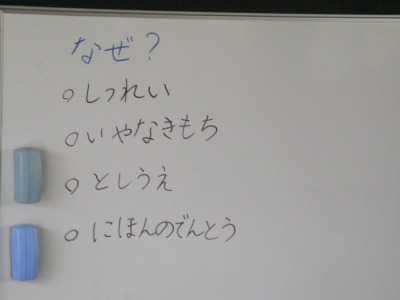 なぜ？
○しつれい
○いやなきもち
○としうえ
○にほんのでんとう